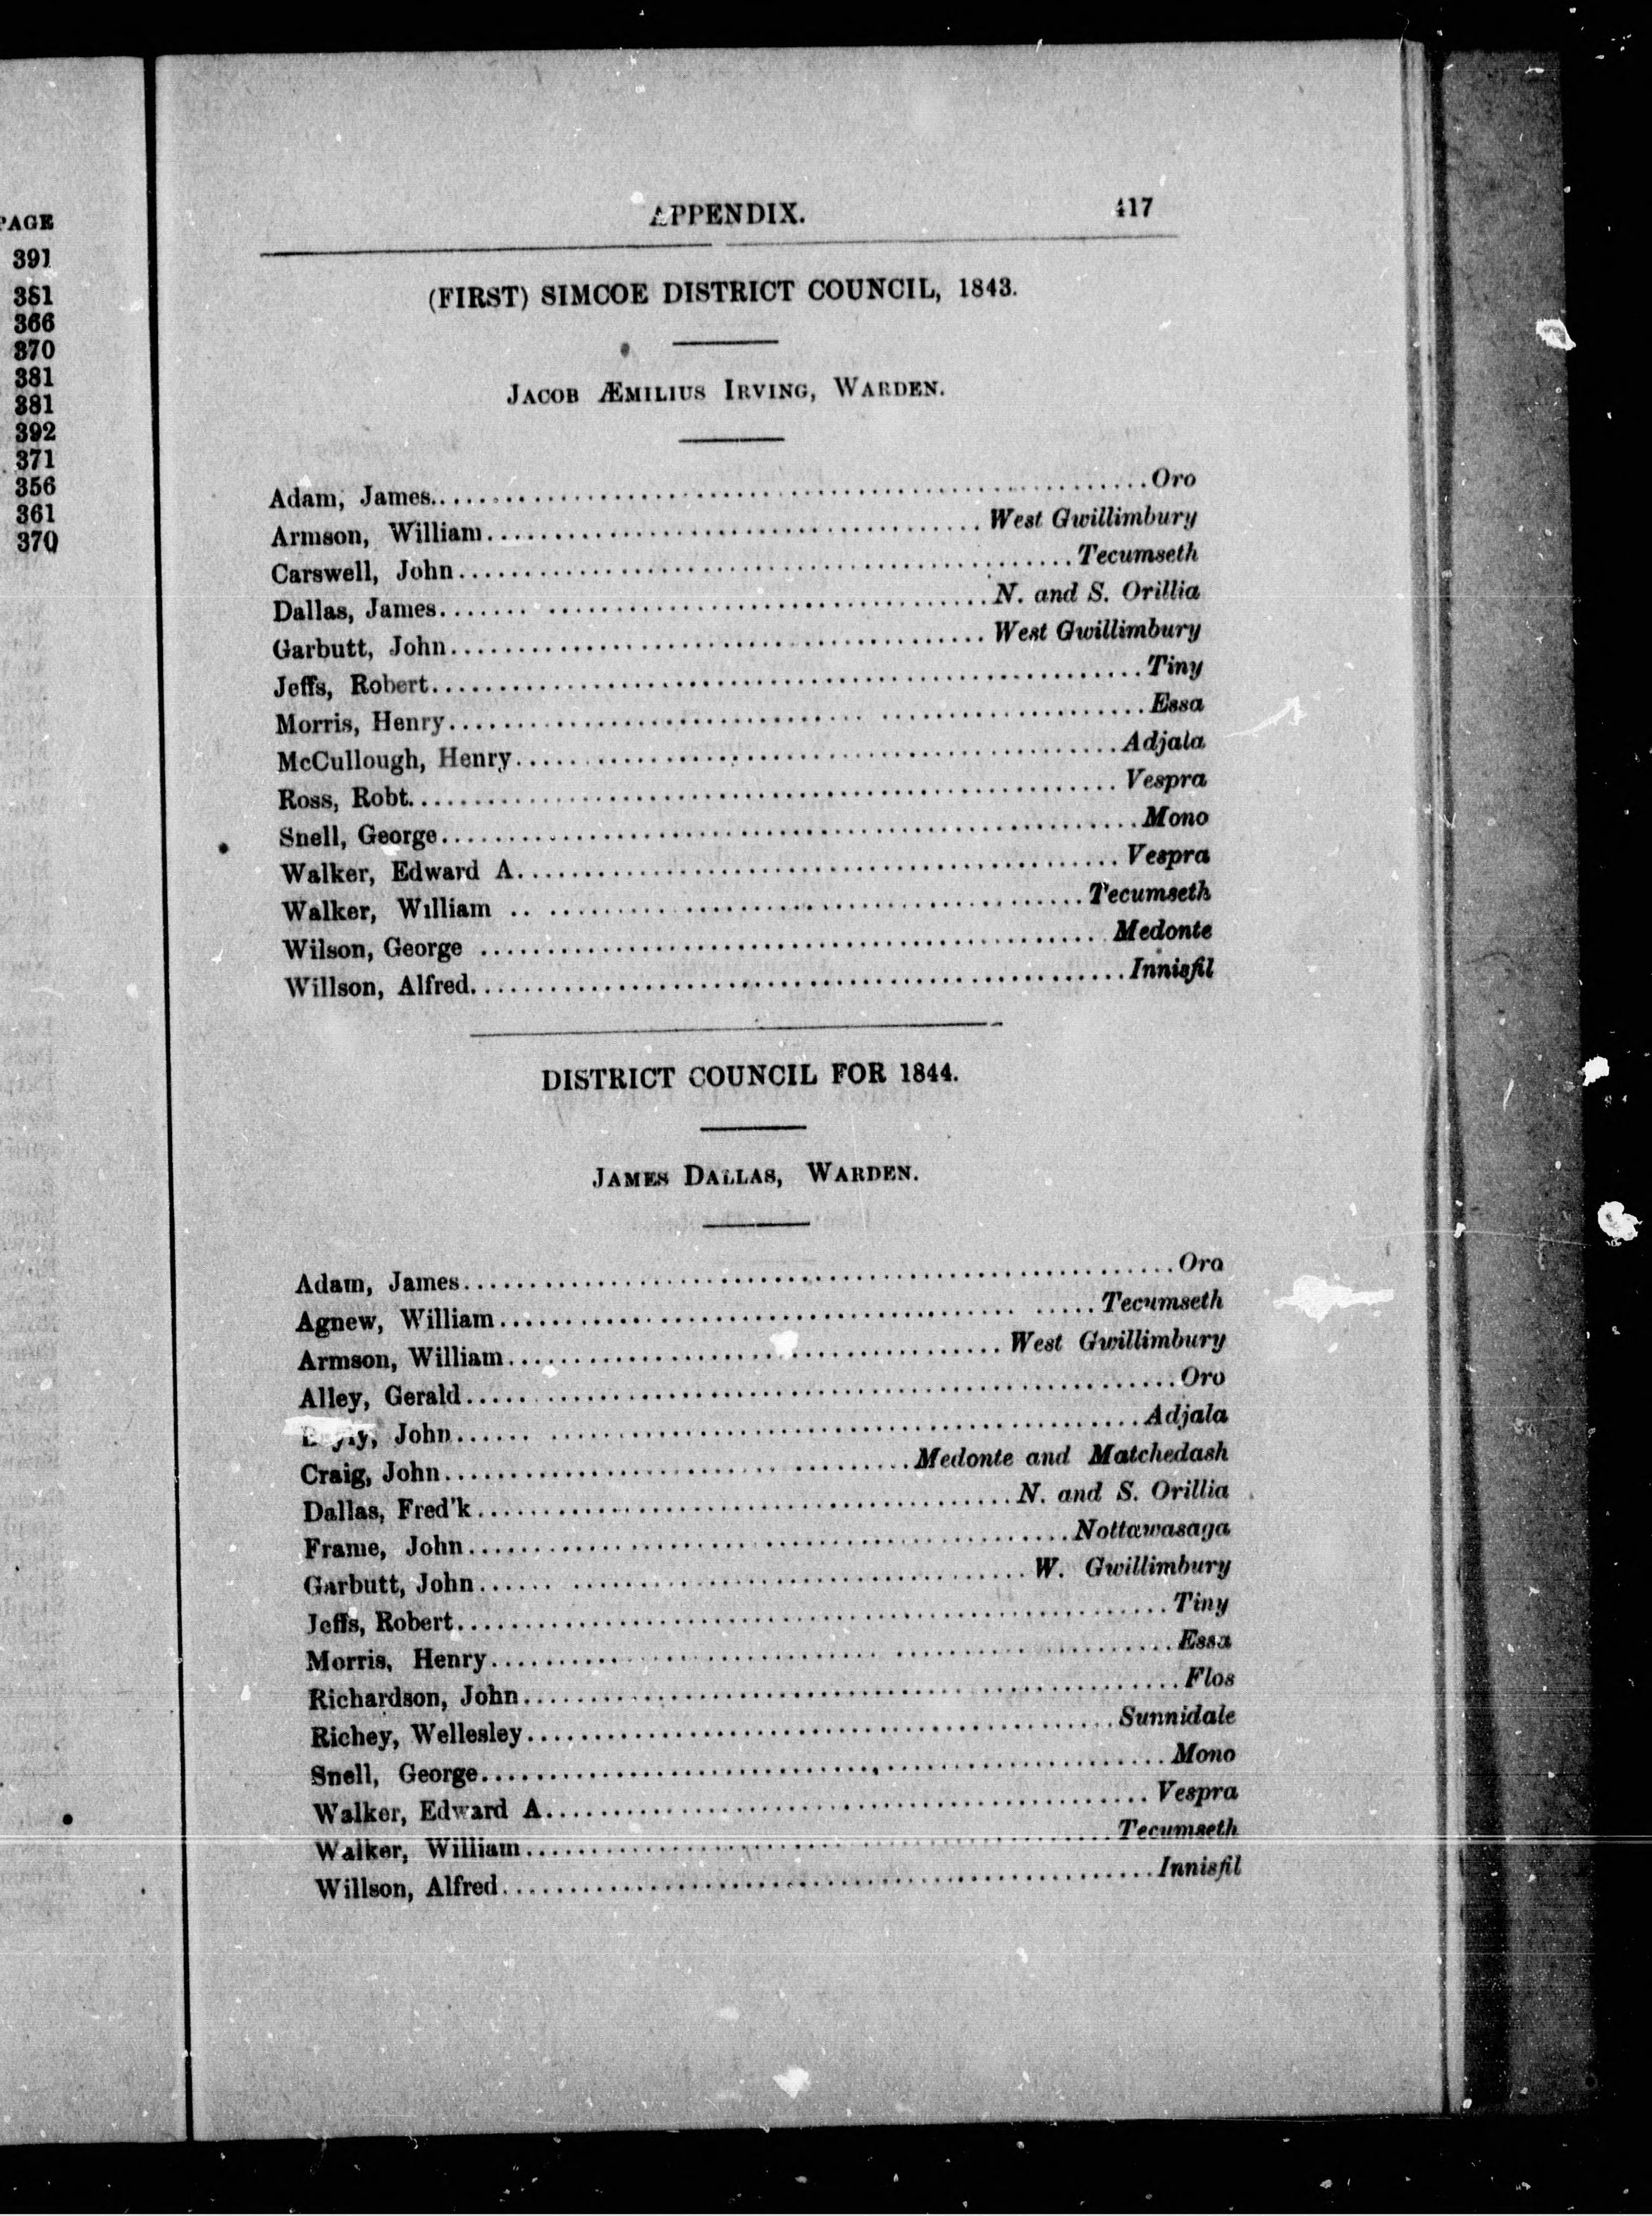 PAGE
391
381
366
370
381
381
392
371
356
361
370
APPENDIX. 417
(FIRST) SIMCOE DISTRICT COUNCIL, 1843.
JACOB ÆMILIUS IRVING, WARDEN.
Adam, James........Oro
Armson, William........West Gwillimbury
Carswell, John........Tecumseth
Dallas, James........N. and S. Orillia
Garbutt, John........West Gwillimbury
Jeffs, Robert........Tiny
Morris, Henry........Essa
McCullough, Henry........Adjala
Ross, Robt.........Vespra
Snell, George........Mono
Walker, Edward A.........Vespra
Walker, William ........Tecumseth
Wilson, George ........Medonte
Willson, Alfred........Innisfil
DISTRICT COUNCIL FOR 1844.
JAMES DALLAS, WARDEN.
Adam, James........Oro
Agnew, William........Tecumseth
Armson, William........West Gwillimbury
Alley, Gerald........Oro
John........Adjala
Craig, John........Medonte and Matchedash
Dallas, Fred'k........N. and S. Orillia
Frame, John........Nottawasaga
Garbutt, John........W. Gwillimbury
Jeffs, Robert........Tiny
Morris, Henry........Essa
Richardson, John........Flos
Richey, Wellesley........Sunnidale
Snell, George........Mono
Walker, Edward A.........Vespra
Walker, William........Tecumseth
Willson, Alfred........Innisfil